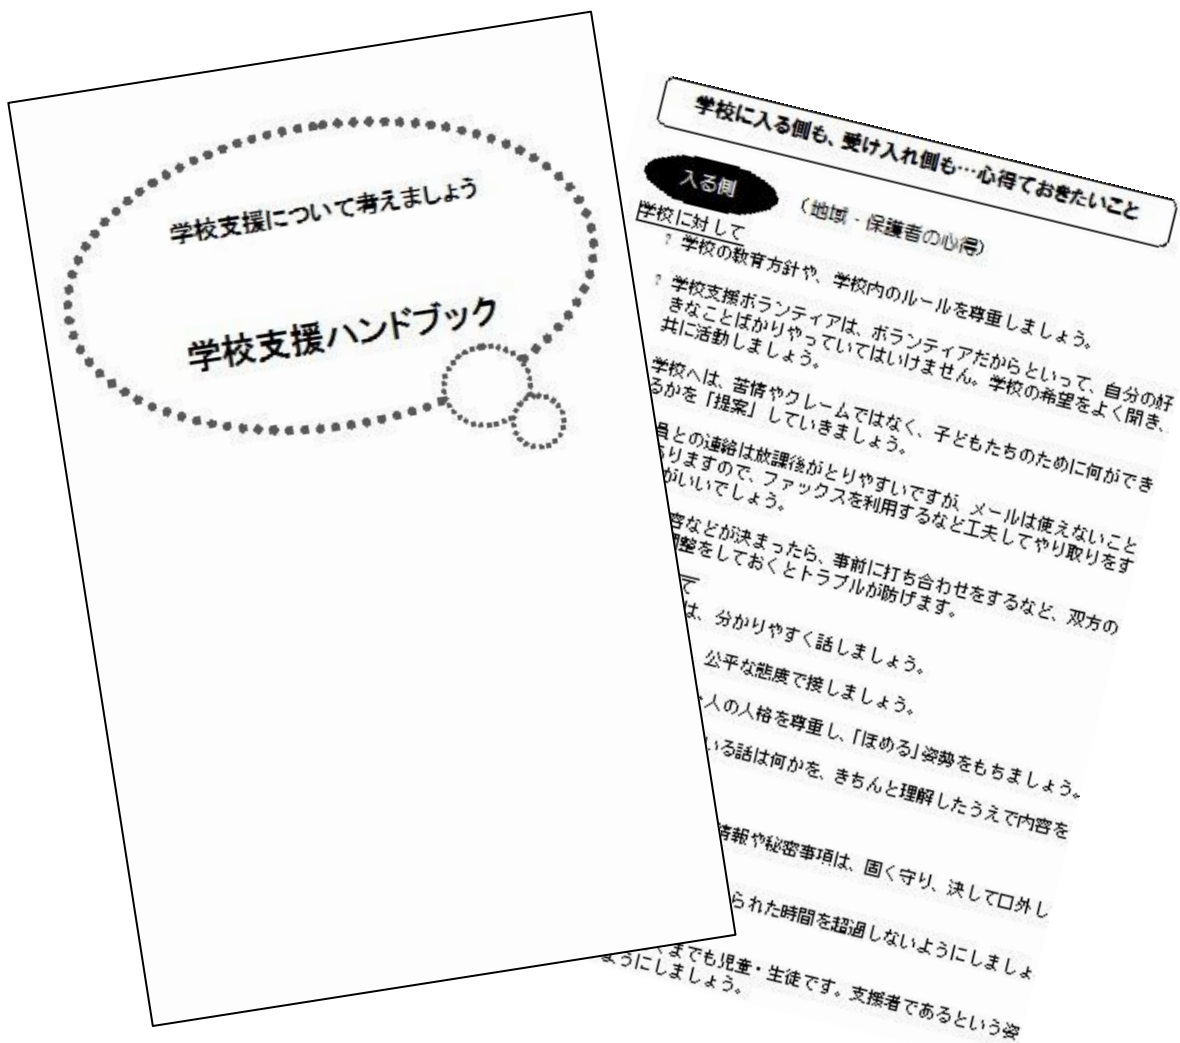 学校支援について考えましょう
学校支援ハンドブック
学校に入る側も、受け入れ側も…心得ておきたいこと
入る側
（地域・保護者の心得）
学校に対して
? 学校の教育方針や、学校内のルールを尊重しましょう。
? 学校支援ボランティアは、ボランティアだからといって、自分の好
きなことばかりやっていてはいけません。学校の希望をよく聞き、
共に活動しましょう。
学校へは、苦情やクレームではなく、子どもたちのために何ができ
るかを「提案」していきましょう。
員との連絡は放課後がとりやすいですが、メールは使えないこと
ありますので、ファックスを利用するなど工夫してやり取りをす
がいいでしょう。
容などが決まったら、事前に打ち合わせをするなど、双方の
調整をしておくとトラブルが防げます。
て
は、分かりやすく話しましょう。
公平な態度で接しましょう。
人の人格を尊重し、「ほめる」姿勢をもちましょう。
いる話は何かを、きちんと理解したうえで内容を
情報や秘密事項は、固く守り、決して口外し
られた時間を超過しないようにしましょ
くまでも児童・生徒です。支援者であるという姿
ようにしましょう。